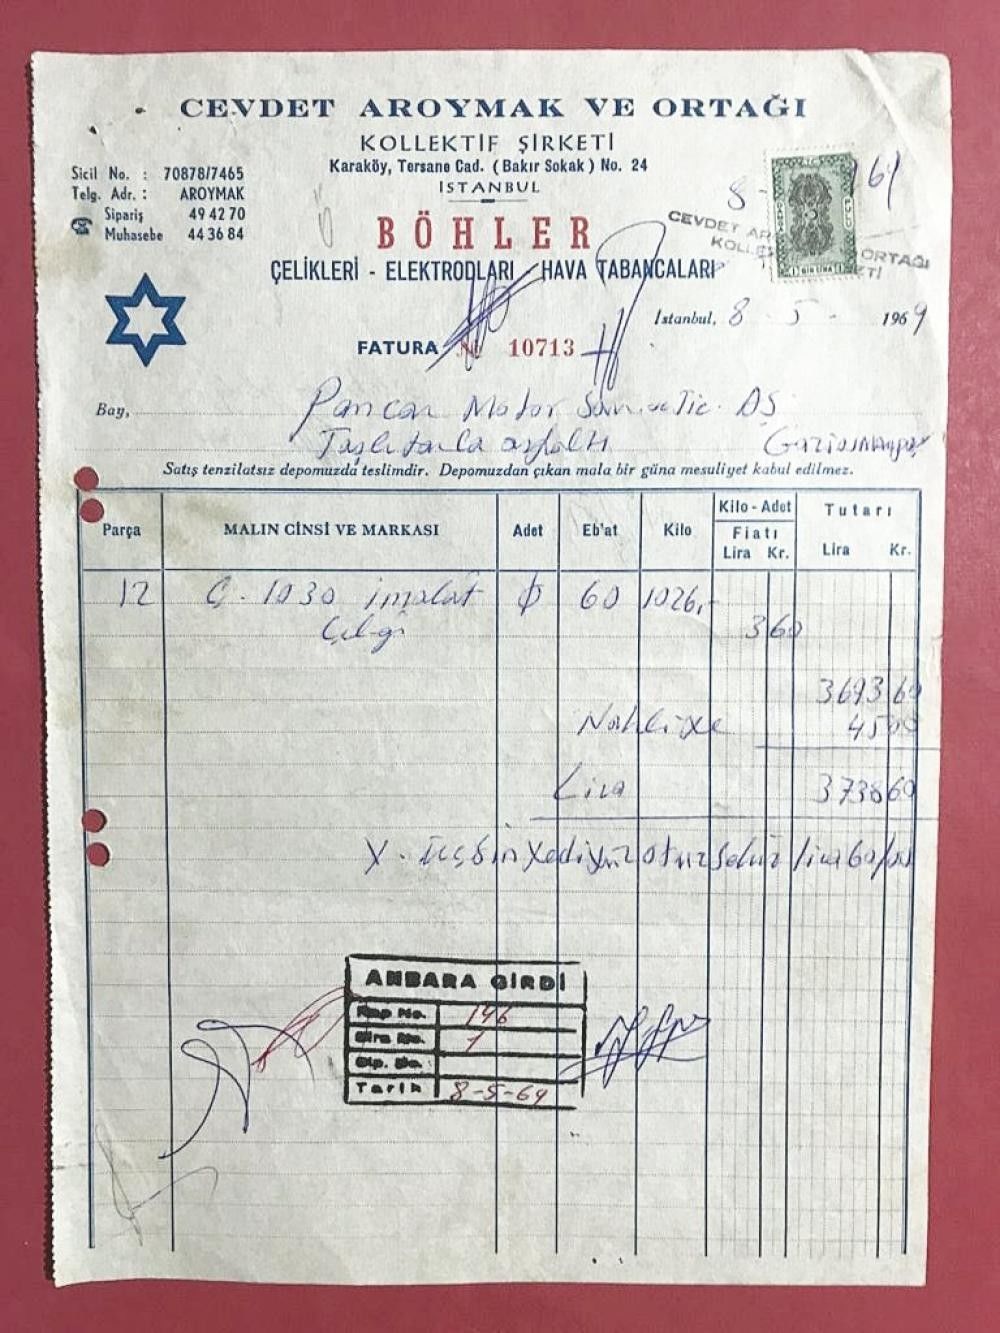 CEVDET AROYMAK VE ORTAĞI
KOLLEKTİF ŞİRKETİ
Karaköy, Tersane Cad. ( Bakır Sokak ) No. 24
İSTANBUL
Sicil No. : 70878/7465
Telg. Adr. : AROYMAK
Sipariş 49 42 70
Muhasebe 44 36 84
BÖHLER
ÇELİKLERİ - ELEKTRODLARI - HAVA TABANCALARI
8 - 69
CEVDET AR ORTAĞI
KOLLE ETİ
1 BİR LİRA 1
İstanbul, 8 - 5 - 1969
FATURA № 10713
Bay, Pancar Motor San. ve Tic. AŞ
Taşlıtarla asfaltı Gaziosmanpaş
Satış tenzilatsız depomuzda teslimdir. Depomuzdan çıkan mala bir güna mesuliyet kabul edilmez.
Parça MALIN CİNSİ VE MARKASI Adet Eb'at Kilo Kilo - Adet Fiatı Lira Kr. Tutarı Lira Kr.
12 Ç. 1030 imalat φ 60 1026,-
Çeliği 3 60
3693 60
Nakliye 45 00
Lira 3738 60
Y. üçbin yediyüz otuzsekiz lira 60/
ANBARA GİRDİ
Rap No. 146
Sıra No. 1
Sip. No.
Tarih 8-5-69